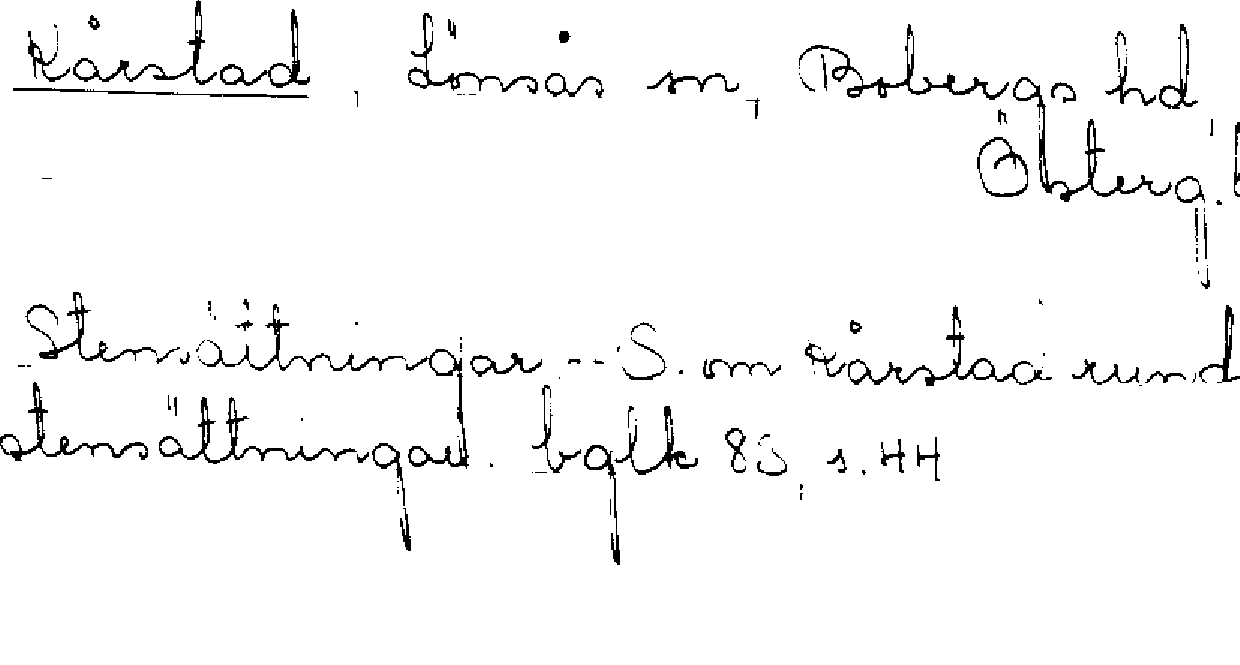 Kårstad, Lönsås sn, Bobergs hd,
Österg.
Stensättningar -- S. om Kårstad rund
stensättningar. bglk 85, s. 44